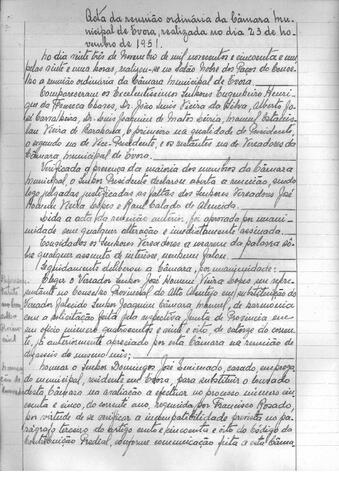 Acta da reunião ordinária da Câmara Mu-
nicipal de Évora, realizada no dia 23 de no-
vembro de 1951.
No dia vinte três de Novembro de mil novecentos e cincoenta e um,
pelas vinte e uma horas, realizou-se no Salão Nobre dos Paços do Conce-
lho a reunião ordinária da Câmara Municipal de Évora.
Compareceram os Excelentíssimos Senhores Engenheiro Henri-
que da Fonseca Chaves, Dr. João Luís Vieira da Silva, Alberto Jo-
sé Carvalheira, Dr. Luís Joaquim de Matos, Manuel
Vieira de Barahona, o primeiro na qualidade de Presidente,
o segundo na de Vice-Presidente, e os restantes na de Vereadores da
Câmara Municipal de Évora.
Verificada a presença da maioria dos membros da Câmara
Municipal, o Senhor Presidente declarou aberta a reunião, sendo
logo julgadas justificadas as faltas dos Senhores Vereadores José
Homem Vieira Lopes e Raul Calado de Almeida.
Lida a acta da reunião anterior, foi aprovada por unani-
midade sem qualquer alteração e imediatamente assinada.
Convidados os Senhores Vereadores a usarem da palavra sô-
bre qualquer assunto de interêsse, nenhum falou.
Seguidamente deliberou a Câmara, por unanimidade:
Eleger o Vereador Senhor José Homem Vieira Lopes seu repre-
sentante no Conselho Provincial do Alto Alentejo em substituição do
Vereador falecido Senhor Joaquim Câmara Manuel, de harmonia
com a solicitação feita pela respectiva Junta de Província em
seu ofício número quatrocentos e vinte e oito, de catorze do corren-
te, já anteriormente apreciado por esta Câmara na reunião de
dezasseis do mesmo mês;
Nomear o Senhor Domingos José, casado, empregado
municipal, residente em Évora, para substituir o louvado
desta Câmara na avaliação a efectuar no processo número cin-
coenta e cinco, do corrente ano, requerida por Francisco Rosado,
por virtude de se verificar a incompatibilidade prevista no pa-
rágrafo terceiro do artigo cento e cincoenta e oito do Código da
Contribuição Predial, conforme comunicação feita a esta Câma-